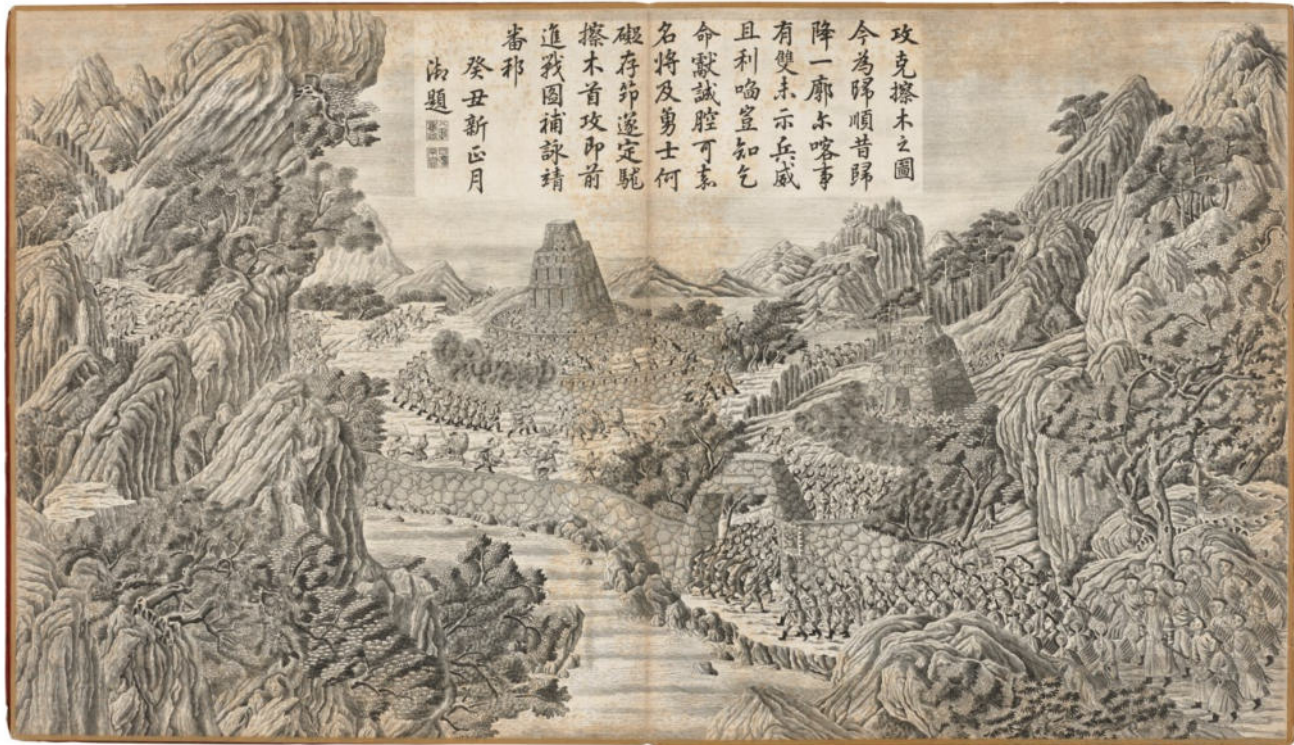 攻克擦木之圖
今為歸順昔歸
降一廓尔喀事
有雙未示兵威
且利啗豈知乞
命獻誠腔可嘉
名將及勇士何
礙存筇遂定駹
擦木首攻即前
進戰圖補詠靖
番邦
癸丑新正月
御題